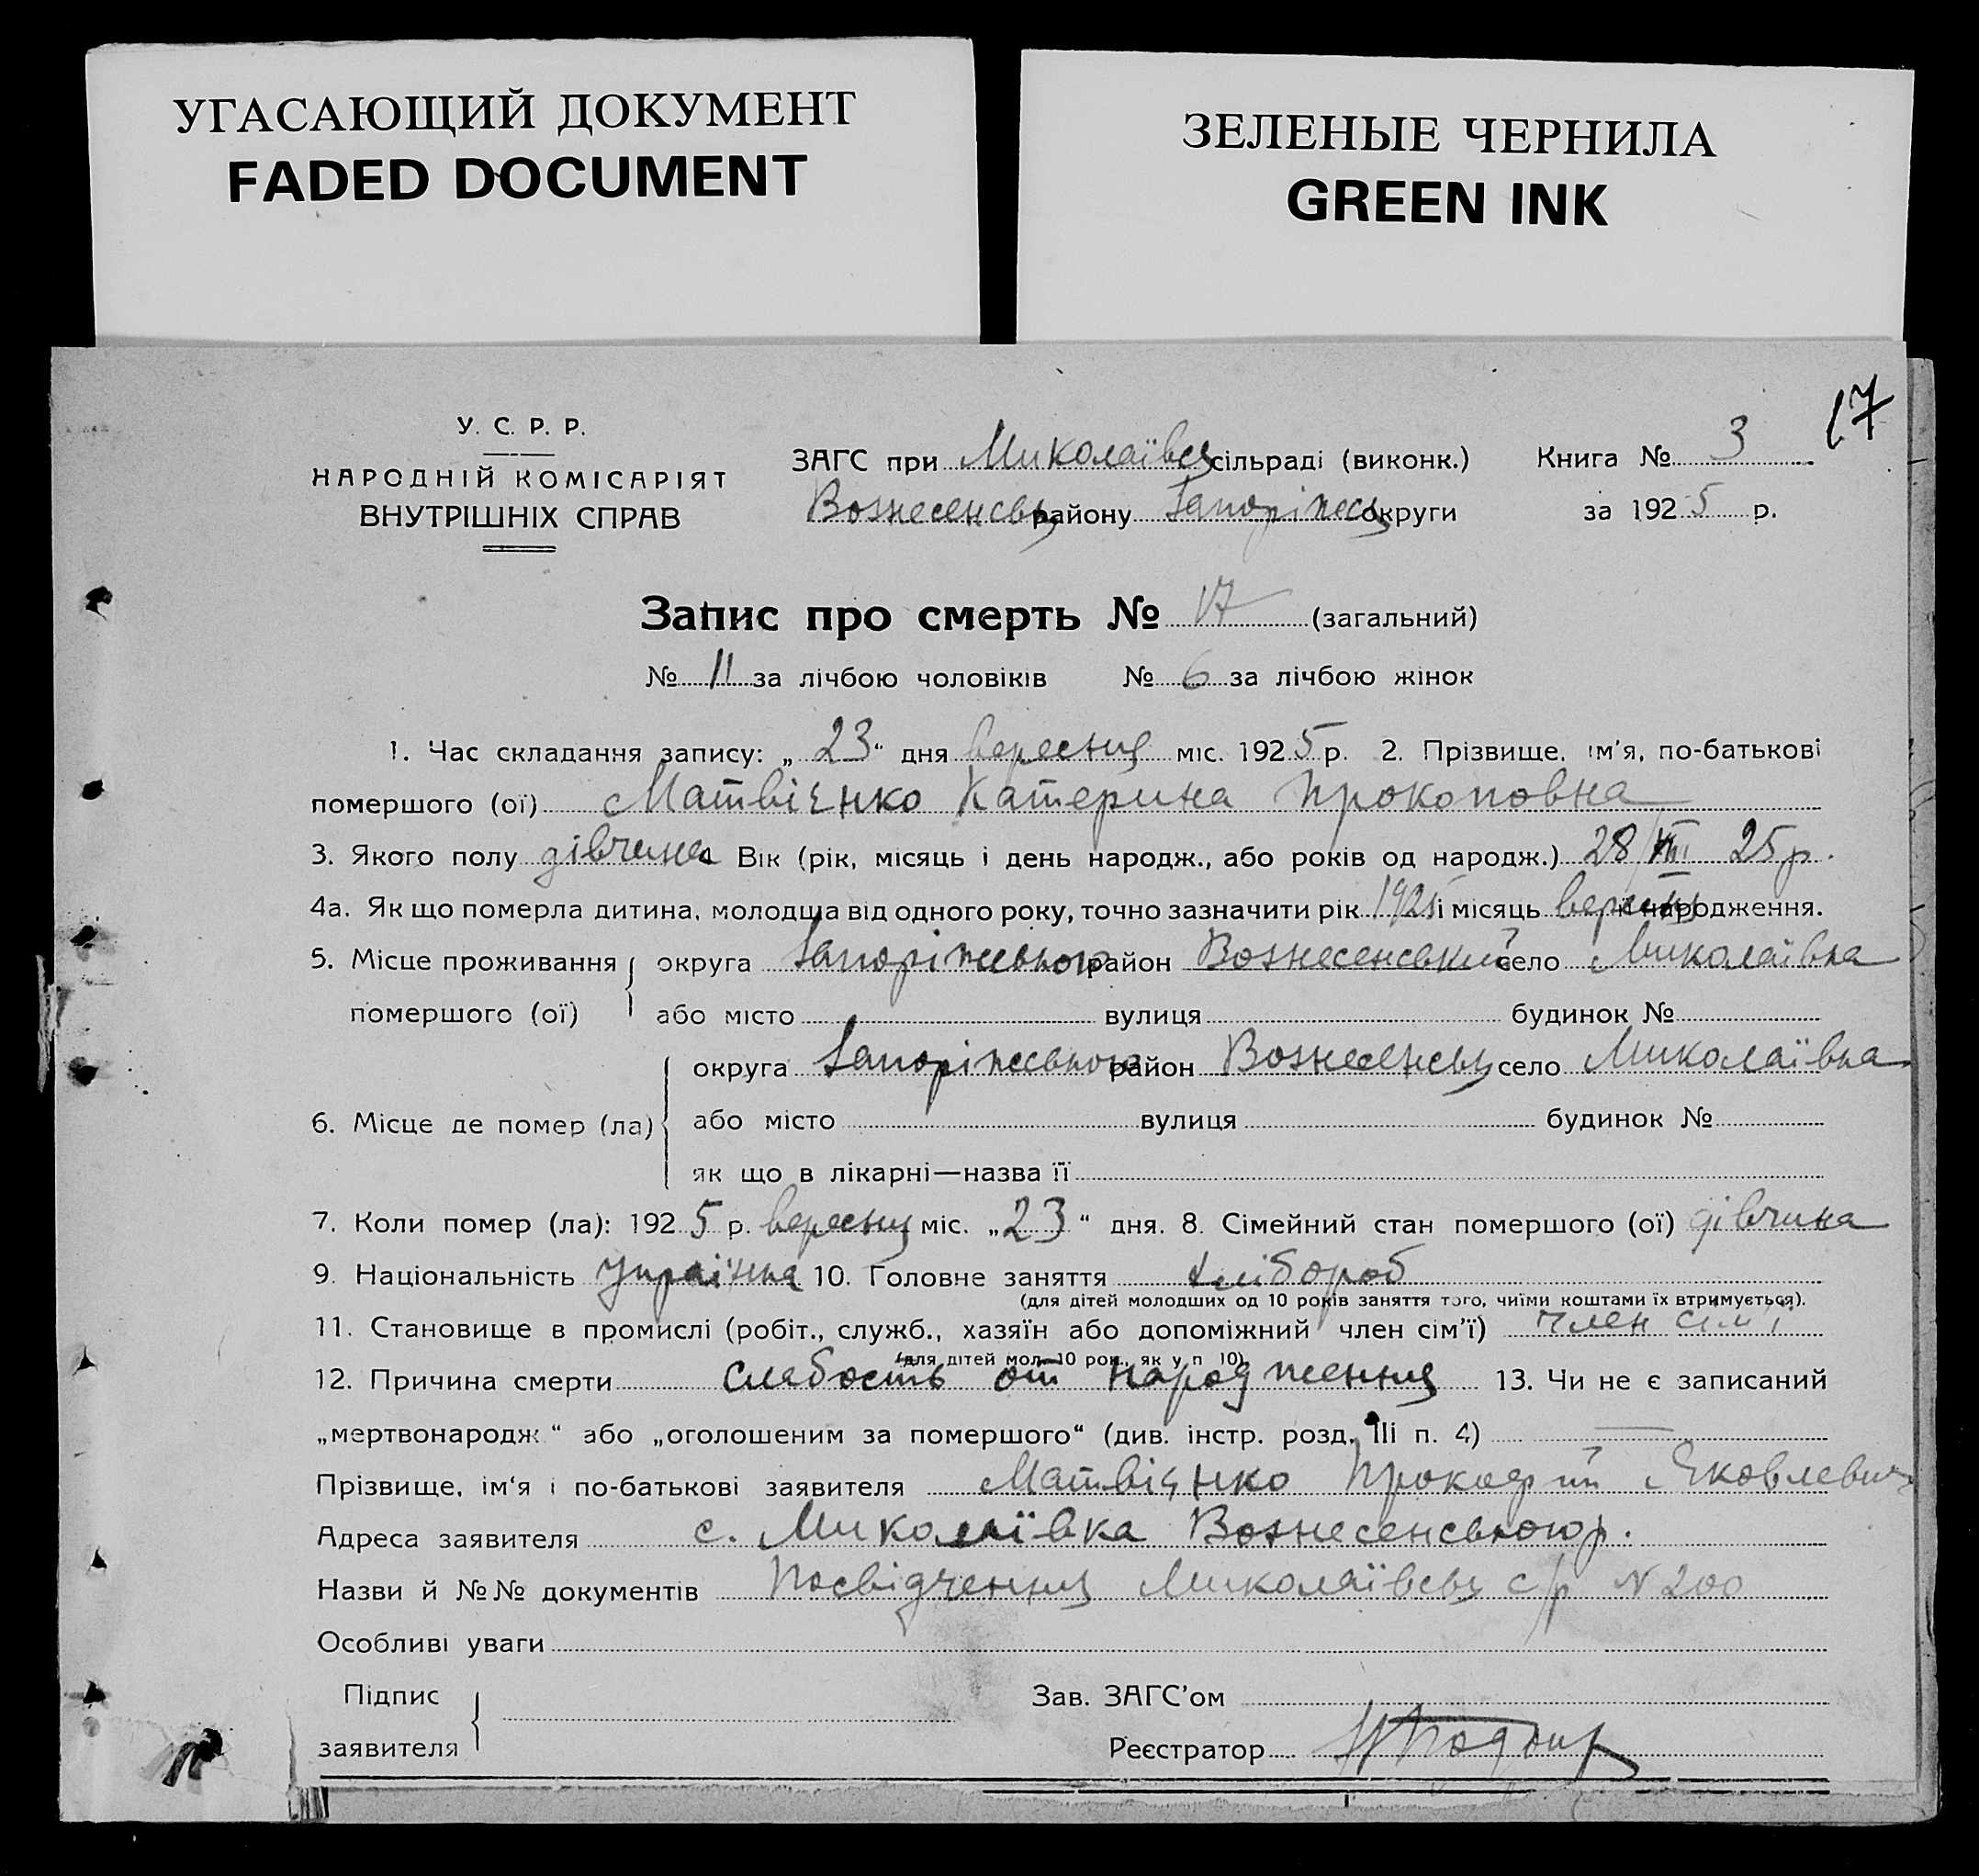 УГАСАЮЩИЙ ДОКУМЕНТ
FADED DOCUMENT
ЗЕЛЕНЫЕ ЧЕРНИЛА
GREEN INK
17
У. С. Р. Р.
НАРОДНІЙ КОМІСАРІЯТ
ВНУТРІШНІХ СПРАВ
ЗАГС при Миколаївськ сільраді (виконк.) Книга № 3
Вознесенськ району Запоріжськ округи за 1925 р.
Запис про смерть № 17 (загальний)
№ 11 за лічбою чоловіків № 6 за лічбою жінок
1. Час складання запису: „23“ дня вересня міс. 1925 р. 2. Прізвище, ім’я, по-батькові
помершого (ої) Матвієнко Катерина Прокоповна
3. Якого полу дівчина 4 Вік (рік, місяць і день народж., або років од народж.) 28/VIII 25 р.
4а. Як що померла дитина, молодша від одного року, точно зазначити рік 1925 і місяць вересня її народження.
5. Місце проживання округа Запоріжської район Вознесенський село Миколаївка
помершого (ої) або місто вулиця будинок №
округа Запоріжської район Вознесенськ село Миколаївка
6. Місце де помер (ла) або місто вулиця будинок №
як що в лікарні—назва її
7. Коли помер (ла): 1925 р. вересня міс. „23“ дня. 8. Сімейний стан помершого (ої) дівчина
9. Національність українка 10. Головне заняття хлібороб
(для дітей молодших од 10 років заняття того, чиїми коштами їх втримується).
11. Становище в промислі (робіт., служб., хазяїн або допоміжний член сім’ї) член сім’ї
(для дітей мол. 10 рок., як у п 10)
12. Причина смерти слабость от народження 13. Чи не є записаний
„мертвонародж“ або „оголошеним за помершого“ (див. інстр. розд. III п. 4) —
Прізвище, ім‘я і по-батькові заявителя Матвієнко Прокофій Яковлевич
Адреса заявителя с. Миколаївка Вознесенського р.
Назви й №№ документів Посвідчення Миколаївськ с/р N 200
Особливі уваги
Підпис
заявителя
Зав. ЗАГС’ом
Реєстратор